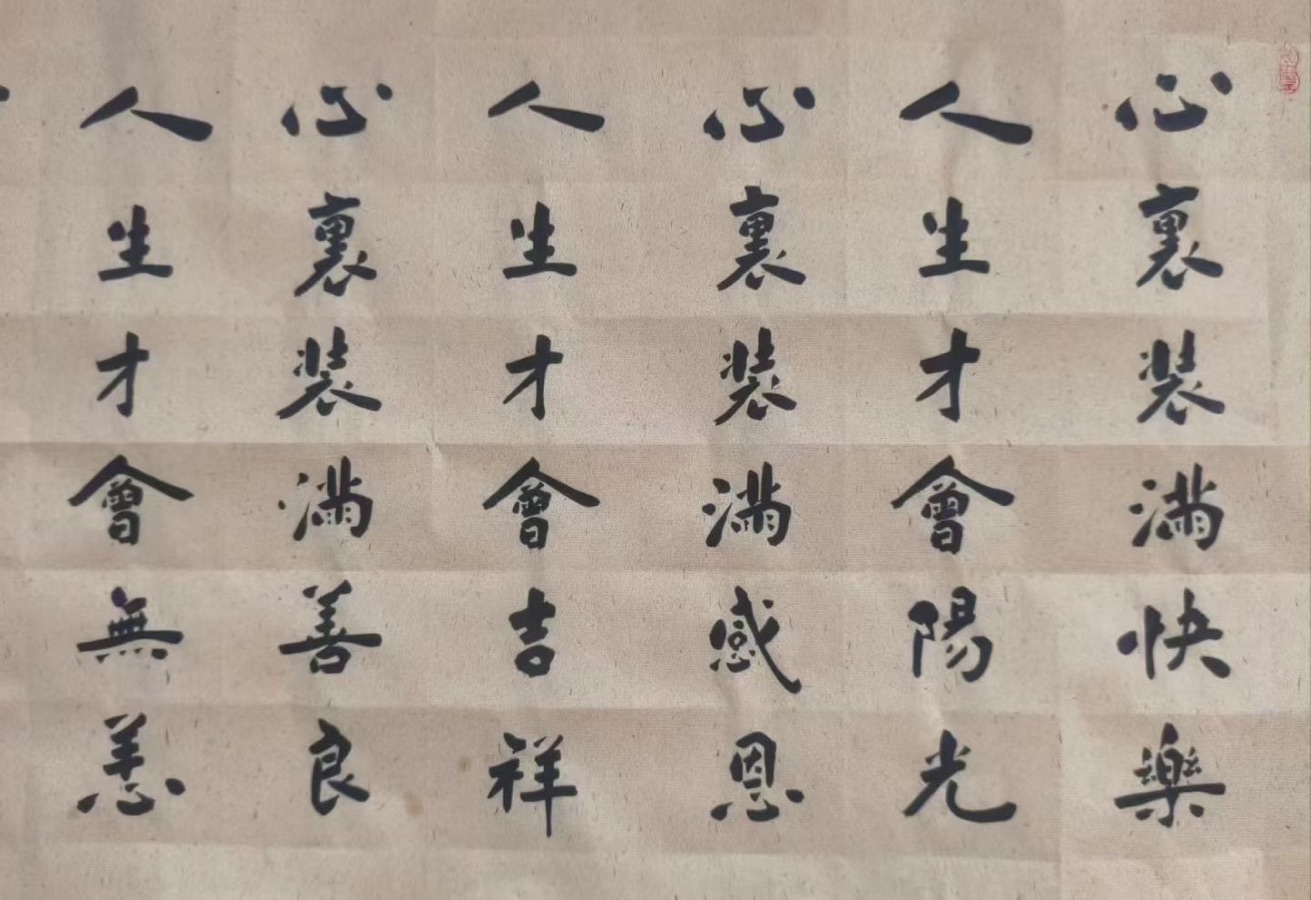 心裏裝滿快樂
人生才會陽光
心裏裝滿感恩
人生才會吉祥
心裏裝滿善良
人生才會無恙